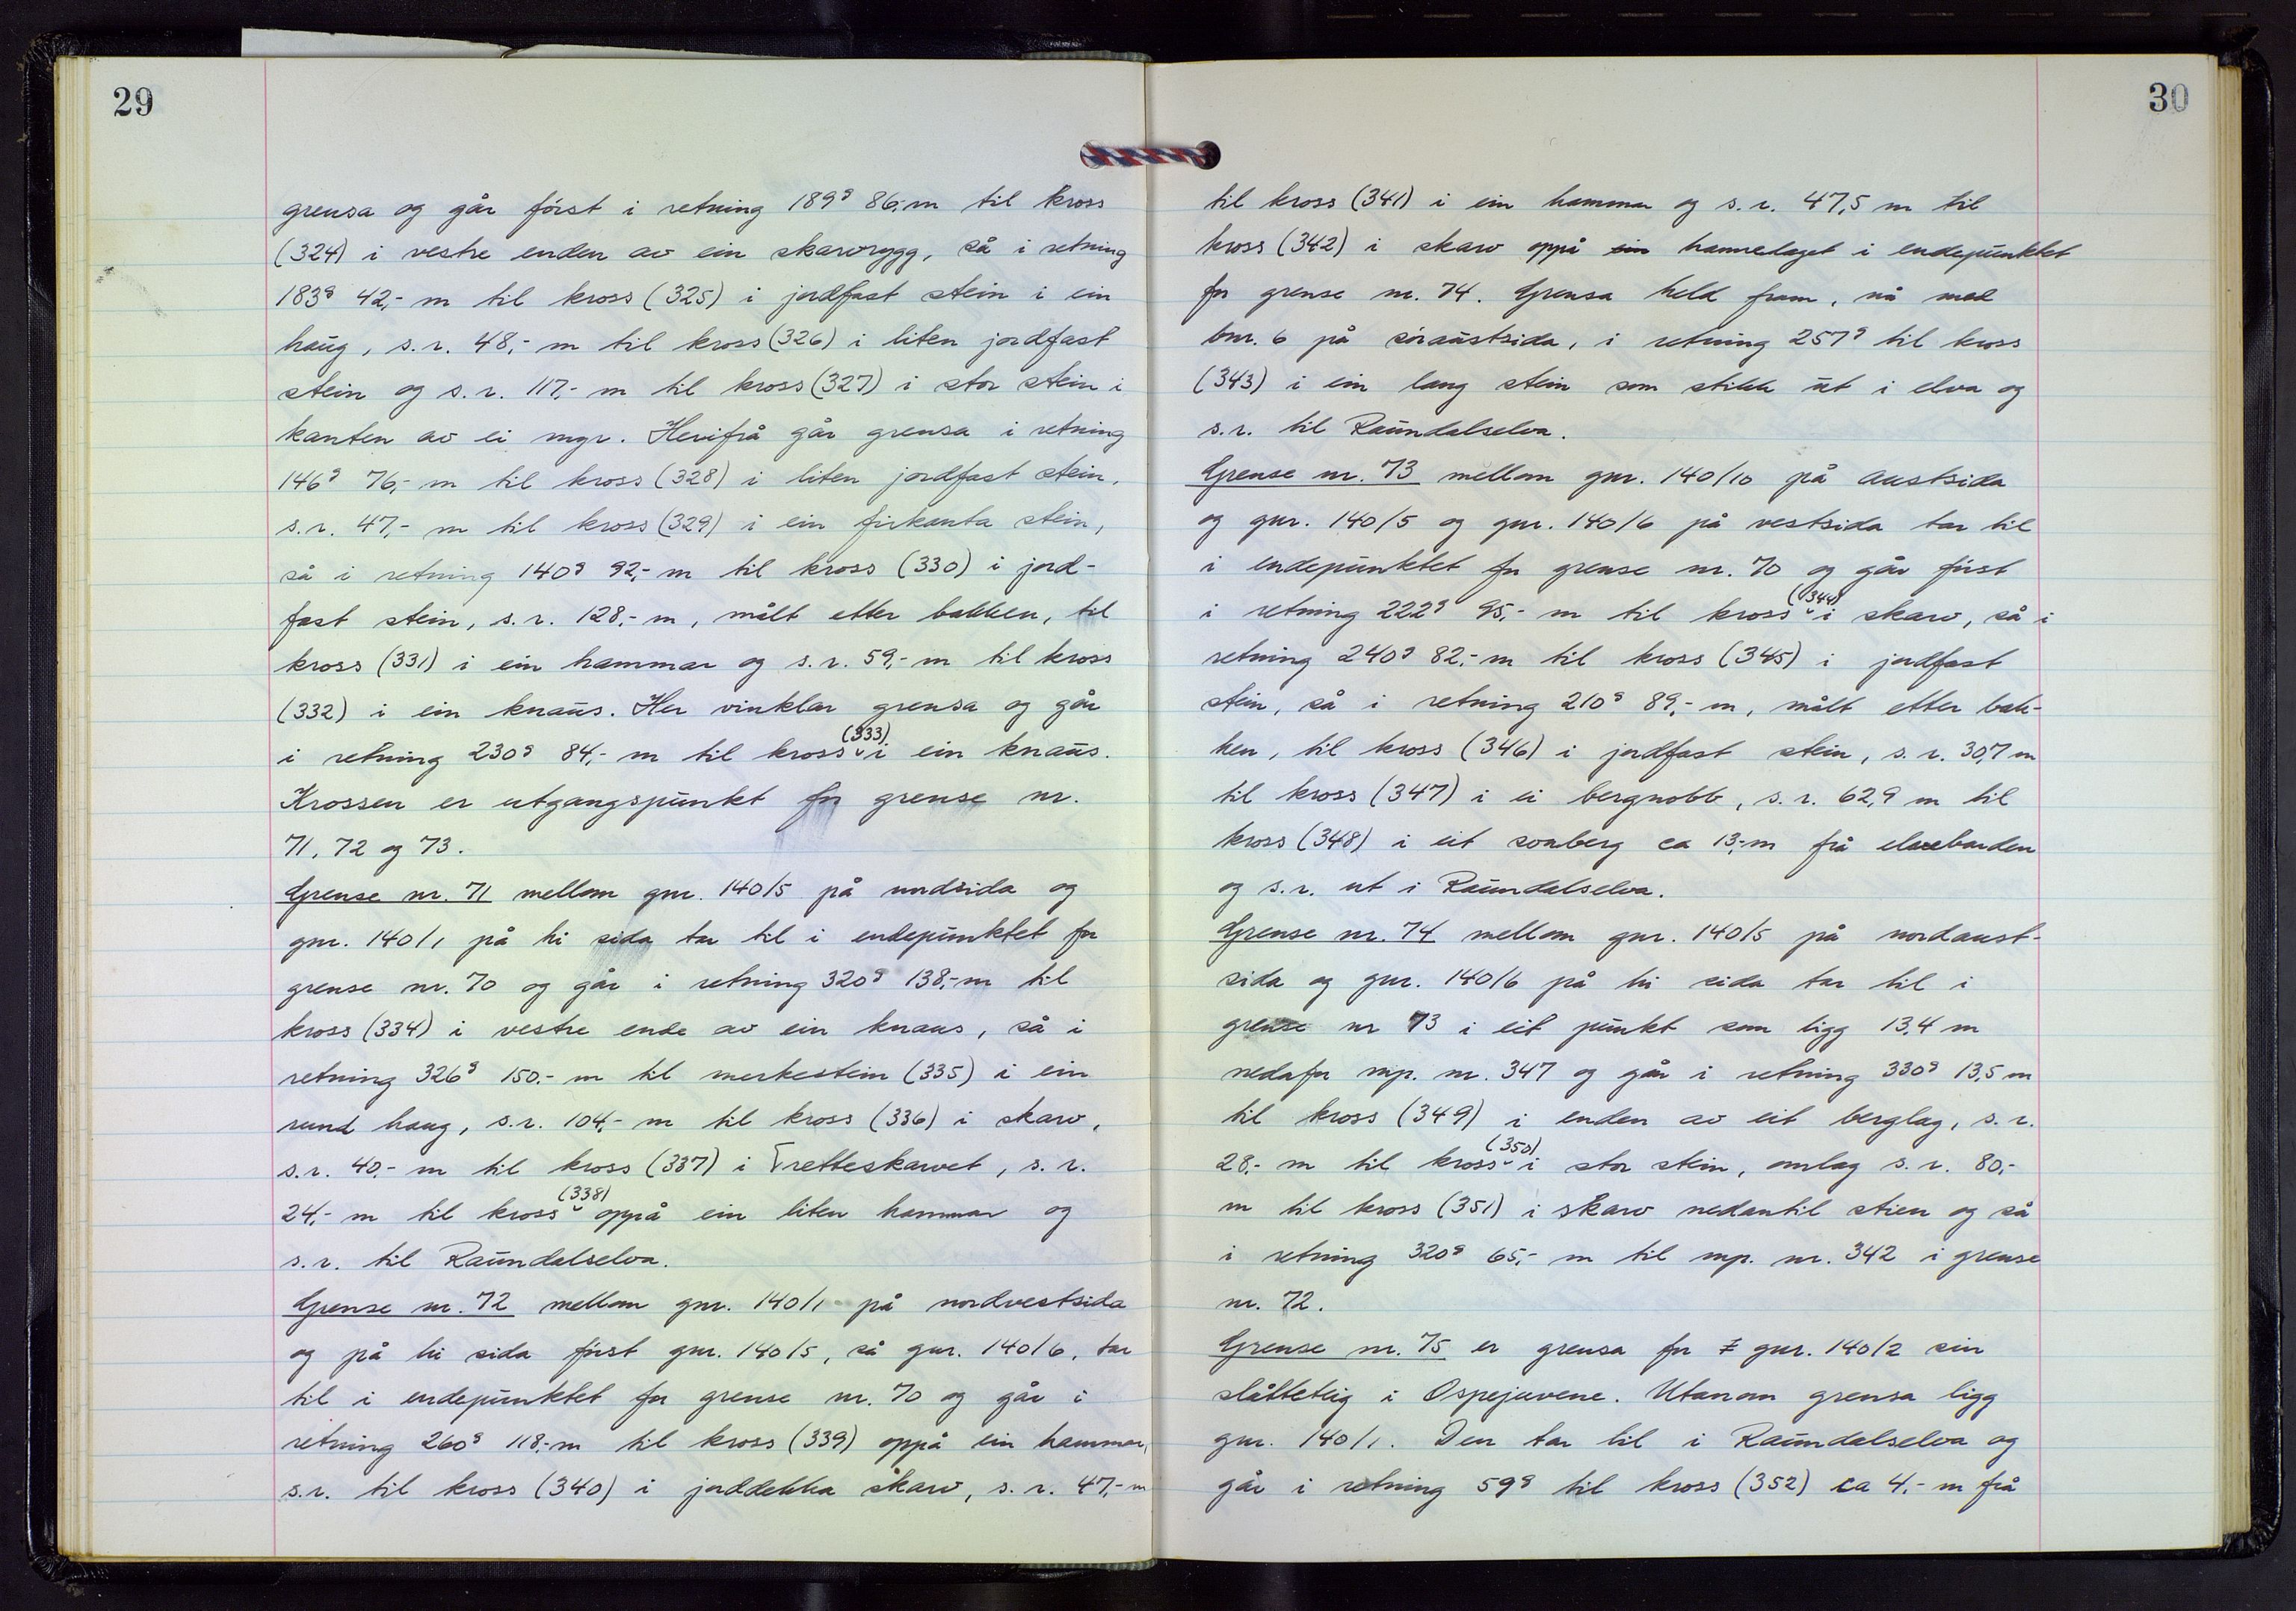 29
grensa og går først i retning 189ᵍ 86,- m til kross
(324) i vestre enden av ein skarvrygg, så i retning
183ᵍ 42,- m til kross (325) i jordfast stein i ein
haug, s.r. 48,- m til kross (326) i liten jordfast
stein og s.r. 117,- m til kross (327) i stor stein i
kanten av ei myr. Herifrå går grensa i retning
146ᵍ 76,- m til kross (328) i liten jordfast stein,
s.r. 47,- m til kross (329) i ein firkanta stein,
så i retning 140ᵍ 92,- m til kross (330) i jord-
fast stein, s.r. 128,- m, målt etter bakken, til
kross (331) i ein hammar og s.r. 59,- m til kross
(332) i ein knaus. Her vinklar grensa og går
i retning 230ᵍ 84,- m til kross (333) i ein knaus.
Krossen er utgangspunkt for grense nr.
71, 72 og 73.
Grense nr. 71 mellom gnr. 140/5 på nordsida og
gnr. 140/1 på hi sida tar til i endepunktet for
grense nr. 70 og går i retning 320ᵍ 138,- m til
kross (334) i vestre ende av ein knaus, så i
retning 326ᵍ 150,- m til merkestein (335) i ein
rund haug, s.r. 104,- m til kross (336) i skarv,
s.r. 40,- m til kross (337) i Tretteskarvet, s.r.
24,- m til kross (338) oppå ein liten hammar og
s.r. til Raundalselva.
Grense nr. 72 mellom gnr. 140/1 på nordvestsida
og på hi sida først gnr. 140/5, så gnr. 140/6, tar
til i endepunktet for grense nr. 70 og går i
retning 260ᵍ 118,- m til kross (339) oppå ein hammar,
s.r. til kross (340) i jorddekka skarv, s.r. 47,- m
30
til kross (341) i ein hammar og s.r. 47,5 m til
kross (342) i skarv oppå ein hamrelaget i endepunktet
for grense nr. 74. Grensa held fram, nå med
bnr. 6 på søraustsida, i retning 257ᵍ til kross
(343) i ein lang stein som stikk ut i elva og
s.r. til Raundalselva.
Grense nr. 73 mellom gnr. 140/10 på austsida
og gnr. 140/5 og gnr. 140/6 på vestsida tar til
i endepunktet for grense nr. 70 og går først
i retning 222ᵍ 95,- m til kross (344) i skarv, så i
retning 240ᵍ 82,- m til kross (345) i jordfast
stein, så i retning 210ᵍ 89,- m, målt etter bak-
ken, til kross (346) i jordfast stein, s.r. 30,7 m
til kross (347) i ei bergnobb, s.r. 62,9 m til
kross (348) i eit svaberg ca 13,- m frå elvebarden
og s.r. ut i Raundalselva.
Grense nr. 74 mellom gnr. 140/5 på nordaust-
sida og gnr. 140/6 på hi sida tar til i
grense nr 73 i eit punkt som ligg 13,4 m
nedafor mp. nr. 347 og går i retning 330ᵍ 13,5 m
til kross (349) i enden av eit berglag, s.r.
28,- m til kross (350) i stor stein, omlag s.r. 80,-
m til kross (351) i skarv nedantil stien og så
i retning 320ᵍ 65,- m til mp. nr. 342 i grense
nr. 72.
Grense nr. 75 er grensa for gnr. 140/2 sin
slåtteteig i Ospejuvene. Utanom grensa ligg
gnr. 140/1. Den tar til i Raundalselva og
går i retning 59ᵍ til kross (352) ca 4,- m frå